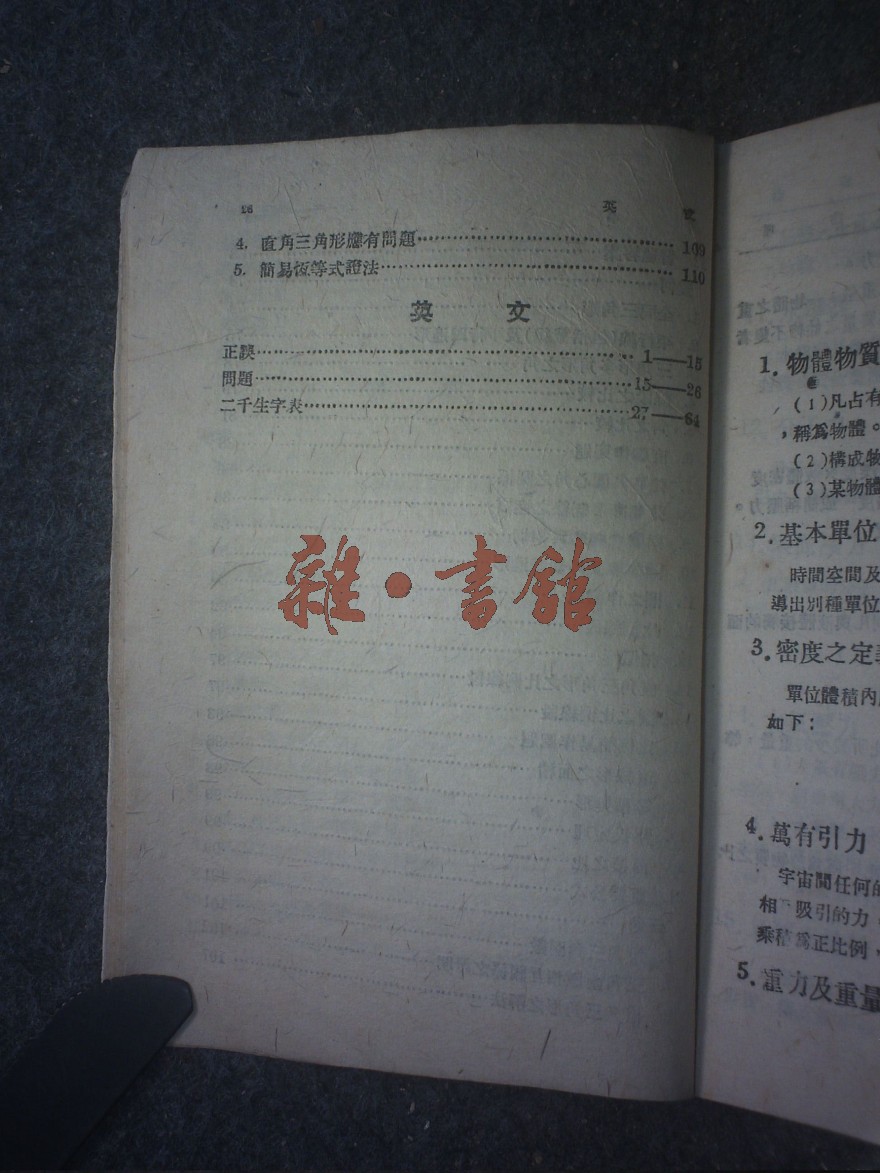 26 英 文
4. 直角三角形應有問題 109
5. 簡易恆等式證法 110
英 文
正誤 1——15
問題 15——26
二千生字表 27——64
雜·書館
1. 物體物質
(1)凡占有
,稱爲物體。
(2)構成物
(3)某物體
2. 基本單位
時間空間及
導出別種單位
3. 密度之定
單位體積內
如下:
4. 萬有引力
宇宙間任何的
相 吸引的力
乘積爲正比例,
5. 重力及重量